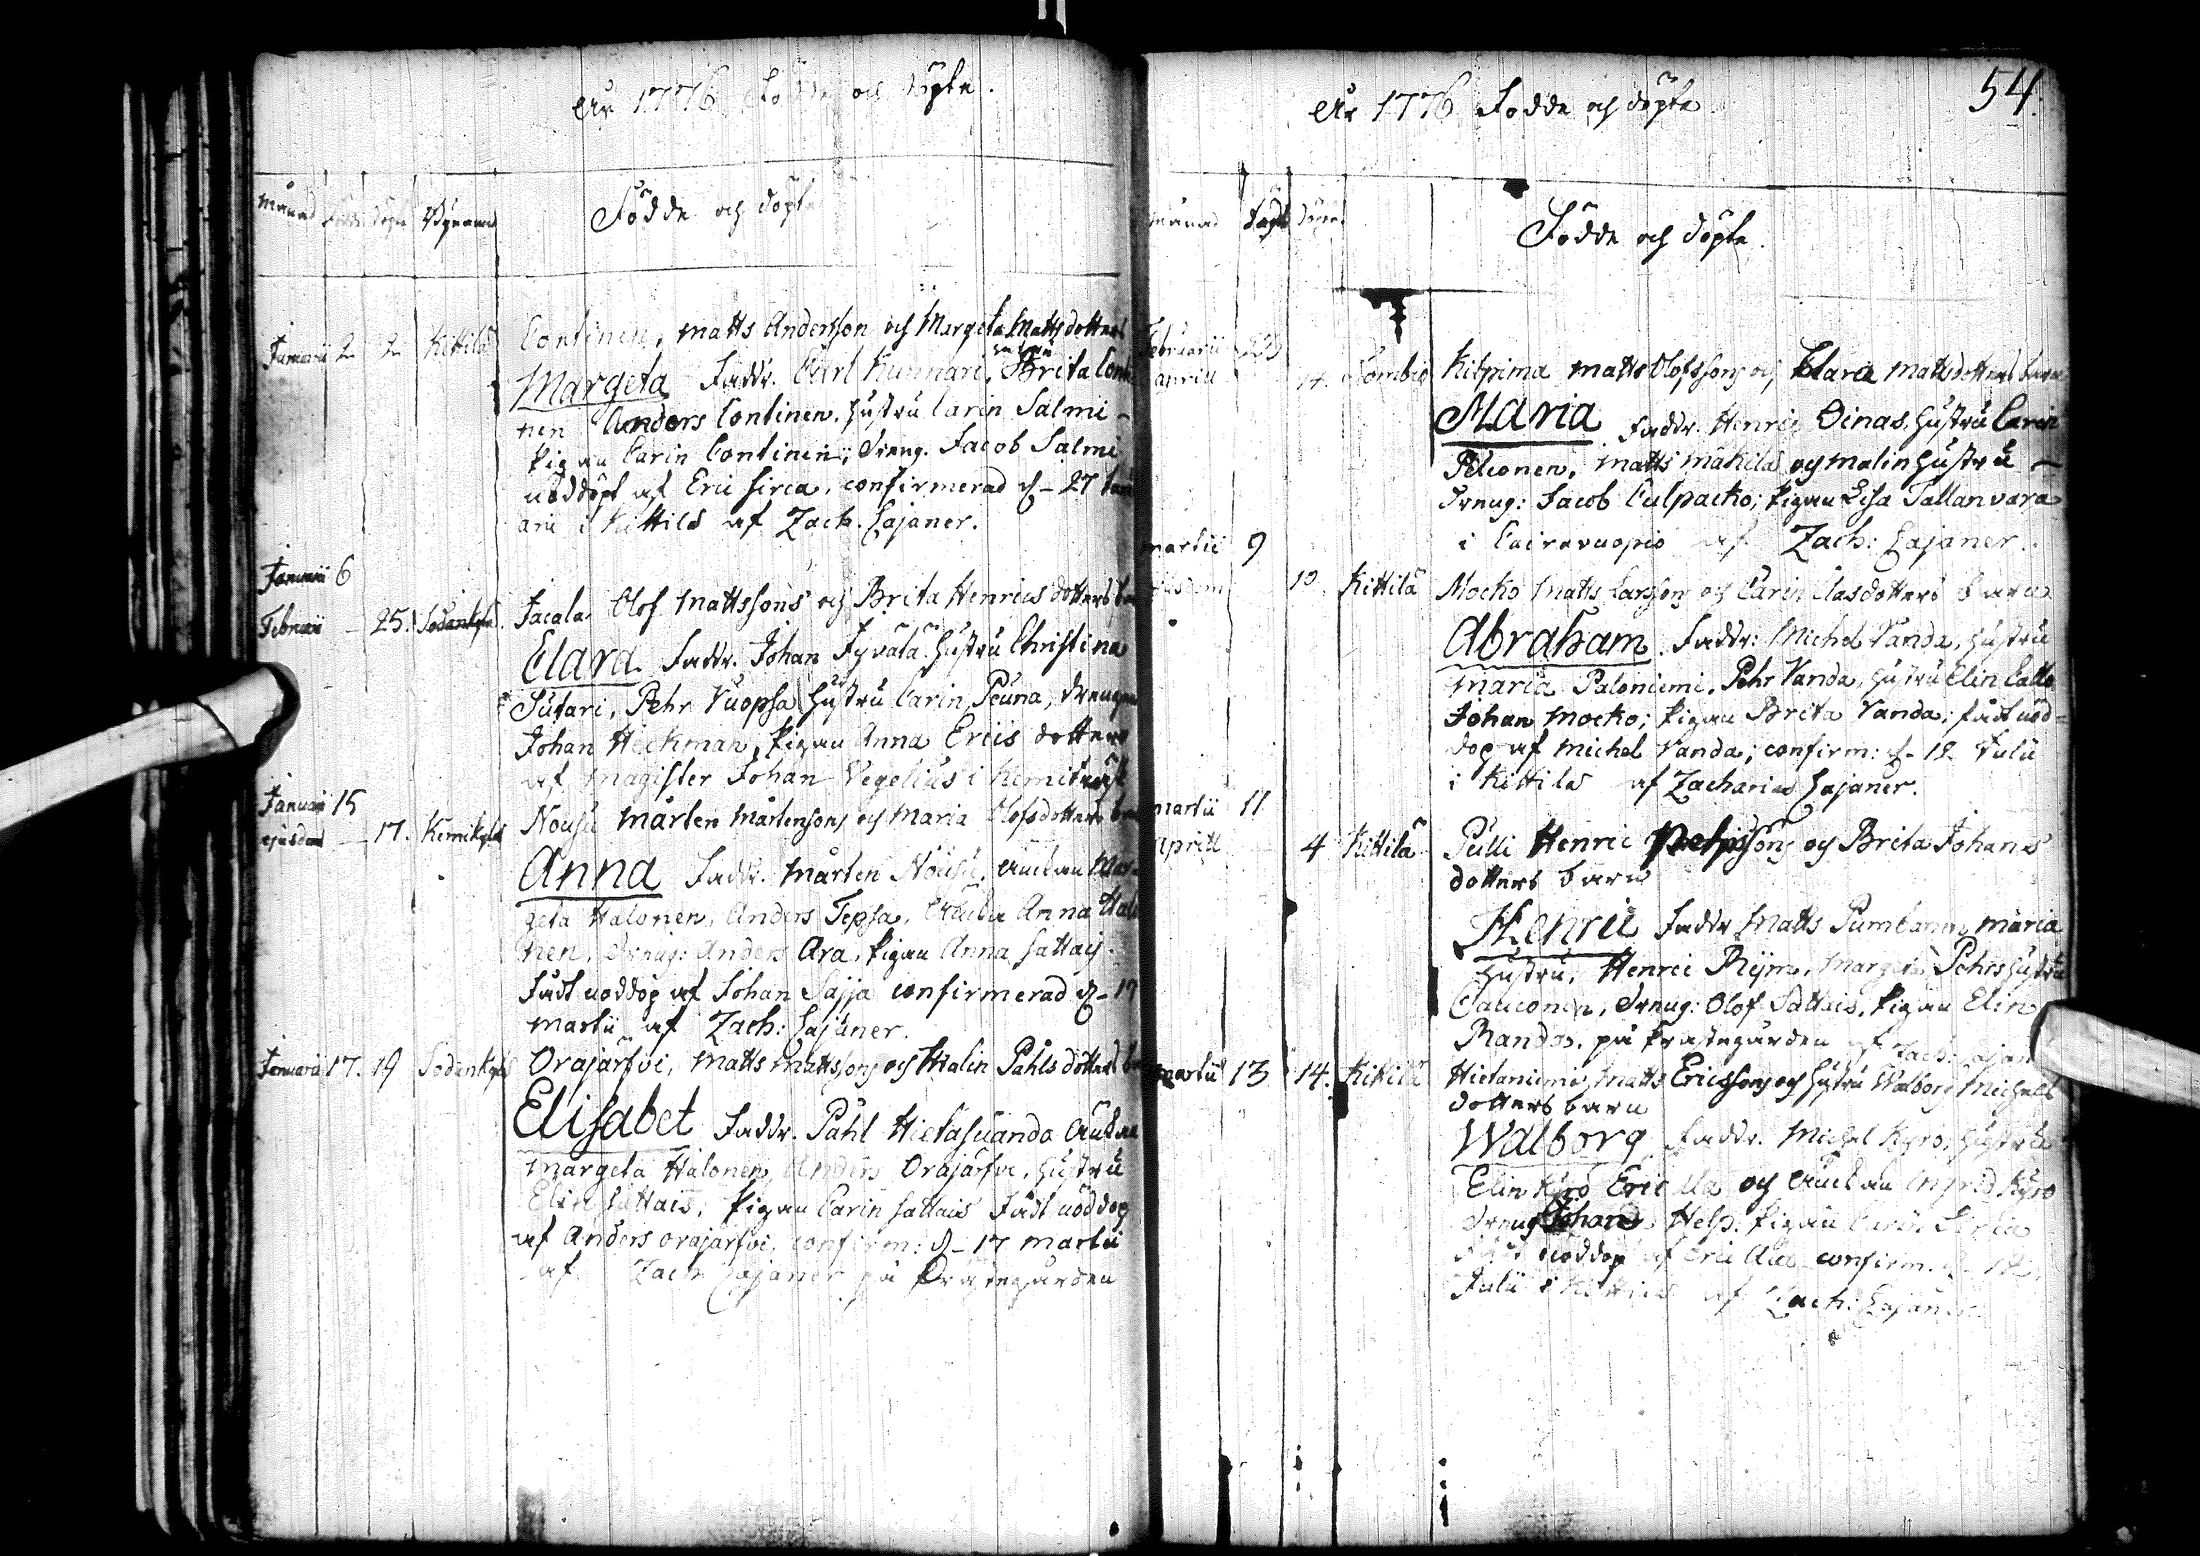 År 1776 Födde och döpte.
månad Födde döpte Bynamn Födde och döpte
Januarii 2 2 Kittilä Continen, Matts Andersson och Margeta Mattsdotters
Margeta Faddr. Carl Kunnari, hustru Brita Conti
nen Anders Continen, hustru Carin Salmi-
Pigan Carin Continen, Dreng. Jacob Salmi
nöddöpt af Eric Sirca, confirmerad d. 27 Janu
arii i Kittilä af Zach. Cajaner.
Januarii 6
Februarii - 25. Sodankylä. Jacala Olof Mattssons och Brita Henricsdotters barn
Clara Faddr. Johan Jyvälä hustru Christina
Sutari, Pehr Vuopsa hustru Carin Peuna, drengen
Johan Heckman, Pigan Anna Ericsdotter
af Magister Johan Vegelius i Kemiträsk
Januarii 15
ejusdem - 17. Kemikylä Nousu Mårten Mårtensons och Maria Olofsdotters barn
Anna Faddr. Mårten Nousu, Enckan Mar-
geta Halonen, Anders Tepsa, Anna Halo
nen, Dreng: Anders Ara, Pigan Anna Sattais.
Fadt nöddöp af Johan Sajja confirmerad d. 17
Martii af Zach: Cajaner.
Januarii 17. 19 Sodankylä Orajärfvi, Matts Mattssons och Malin Påhlsdotters barn
Elisabet Faddr. Påhl Hietasuando Enckan
Margeta Halonen, Anders Orajärfvi, hustru
Elin Sattais, Pigan Carin Sattais Fadt nöddöp
af Anders Orajärfvi, confirm: d. 17 Martii
af Zach Cajaner på Prästegården
År 1776 Födde och döpte 54.
månad Födde Döpte Födde och döpte.
Februarii 23
Aprill 14. Sombio Kitprima Matts Olofssons och Clara Mattsdotters barn
Maria Faddr. Henric Oinas, hustru Carin
Pelconen, Matts Mäkilä och Malin hustru
Dreng: Jacob Culpacko; Pigan Lisa Tallanvara
i Cairavuopio af Zach: Cajaner.
Martii 9
ejusdem 10. Kittilä Mocko Matts Larssons och Carin Clasdotters barn
Abraham. Faddr: Michel Vanda, hustru
Maria Paloniemi, Pehr Vanda, hustru Elin Catto
Johan Mocko; Pigan Brita Vanda; fadt nöd-
döp af Michel Vanda; confirm: d. 12 Julii
i Kittilä af Zacharias Cajaner.
Martii 11
Aprill 4 Kittilä Pulli Henric Pehrssons och Brita Johans
dotters barn
Henric Faddr Matts Pumbanen, Maria
hustru, Henric Ryma, Margeta Pehrs hustru
Cauconen, Dreng: Olof Sattais, Pigan Elin
Randa, på Prästegården af Zach: Cajan
Martii 13 14. Kittilä Hietaniemi, Matts Ericssons och hustru Walborg Michels
dotters barn
Walborg Faddr. Michel Kyrö, hustru
Elin Kyrö Eric Ala och Enckan Ingrid Kyrö
Dreng Johan Help. Pigan Carin Sirca
Fadt nöddöp af Eric Ala confirm. d. 12.
Julii i Kittilä af Zach: Cajaner.